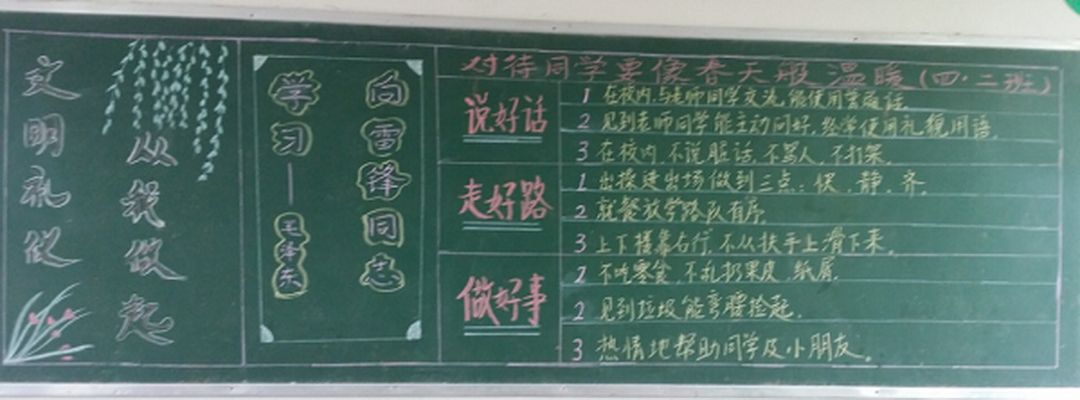 文明礼仪
从我做起
向雷锋同志
学习—毛泽东
对待同学要像春天般温暖(四·二班)
说好话
1 在校内,与老师同学交流,能使用普通话.
2 见到老师同学能主动问好,经常使用礼貌用语.
3 在校内,不说脏话,不骂人,不打架.
走好路
1 出操进出场做到三点:快、静、齐.
2 就餐放学路队有序.
3 上下楼靠右行,不从扶手上滑下来.
做好事
1 不吃零食,不乱扔果皮、纸屑.
2 见到垃圾能弯腰捡起.
3 热情地帮助同学及小朋友.